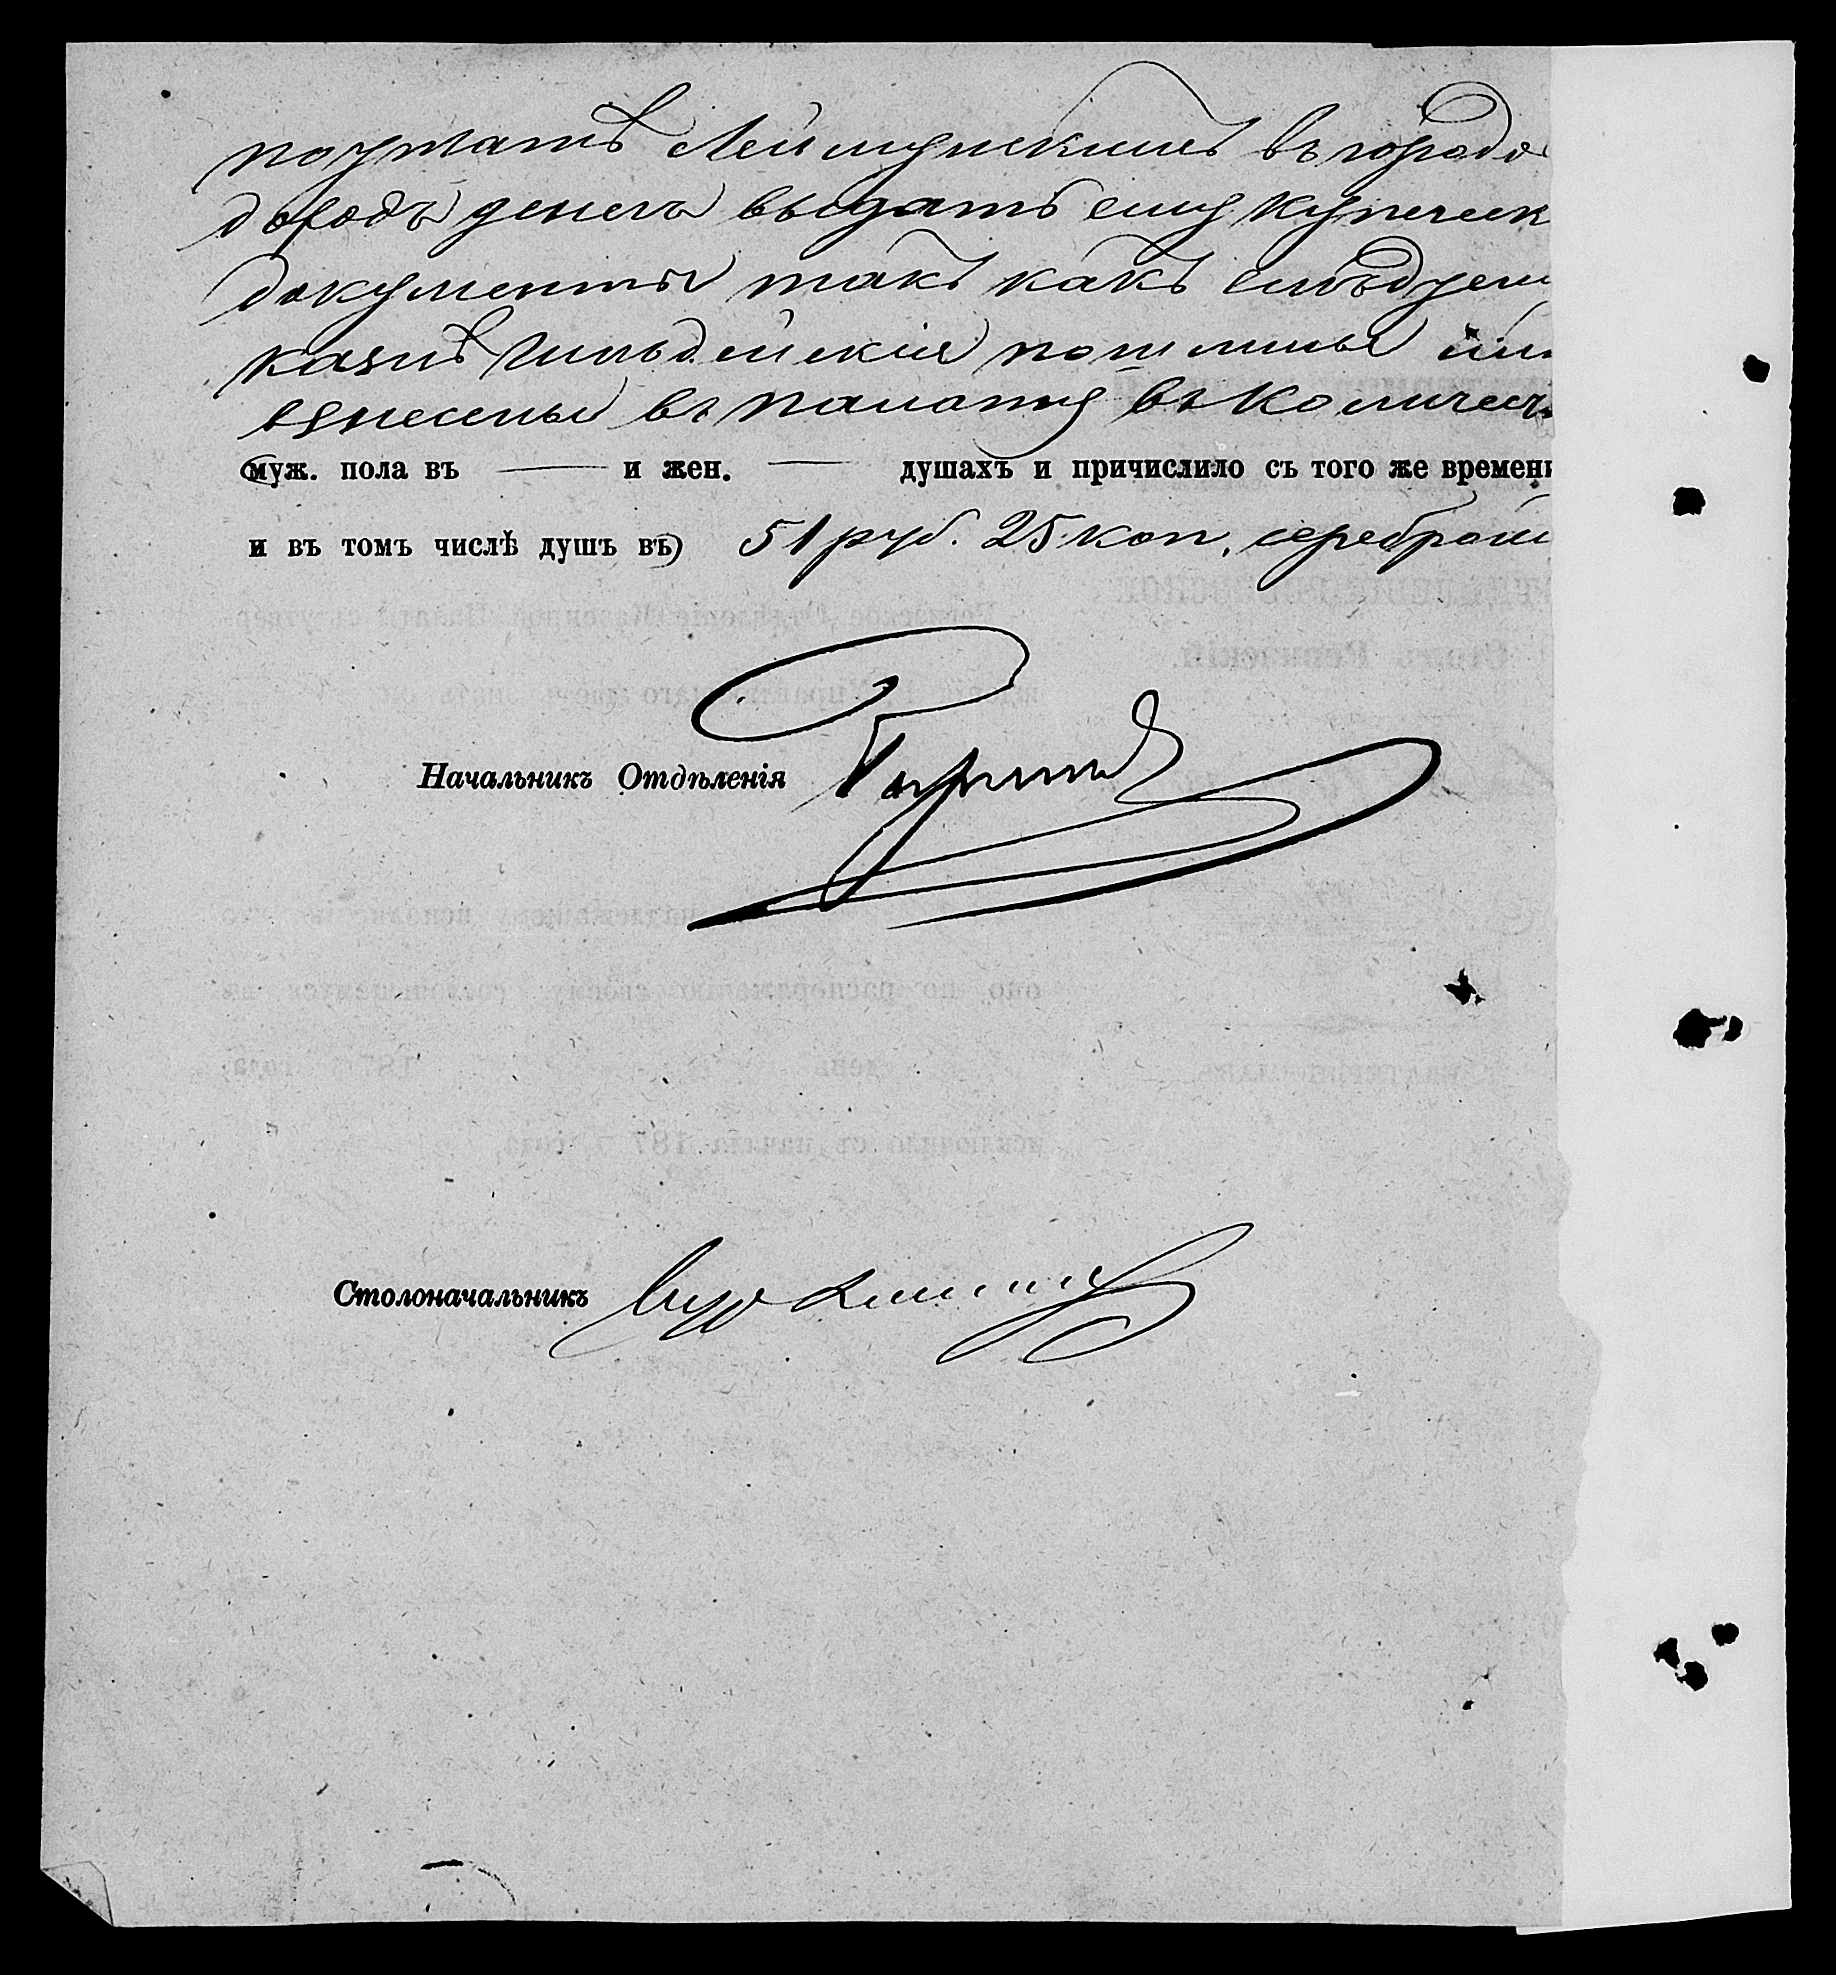 Леймунскимъ въ городо
доходъ денегъ выдать ему купеческ
документы такъ какъ слѣдуем
казнѣ гильдейскія пошлины им
взнесены въ палату въ количест
муж. пола въ —— и жен. —— душахъ и причислило съ того же времени
и въ томъ числѣ душъ въ) 51 руб. 25 коп. серебром
Начальникъ Отдѣленія
Столоначальникъ